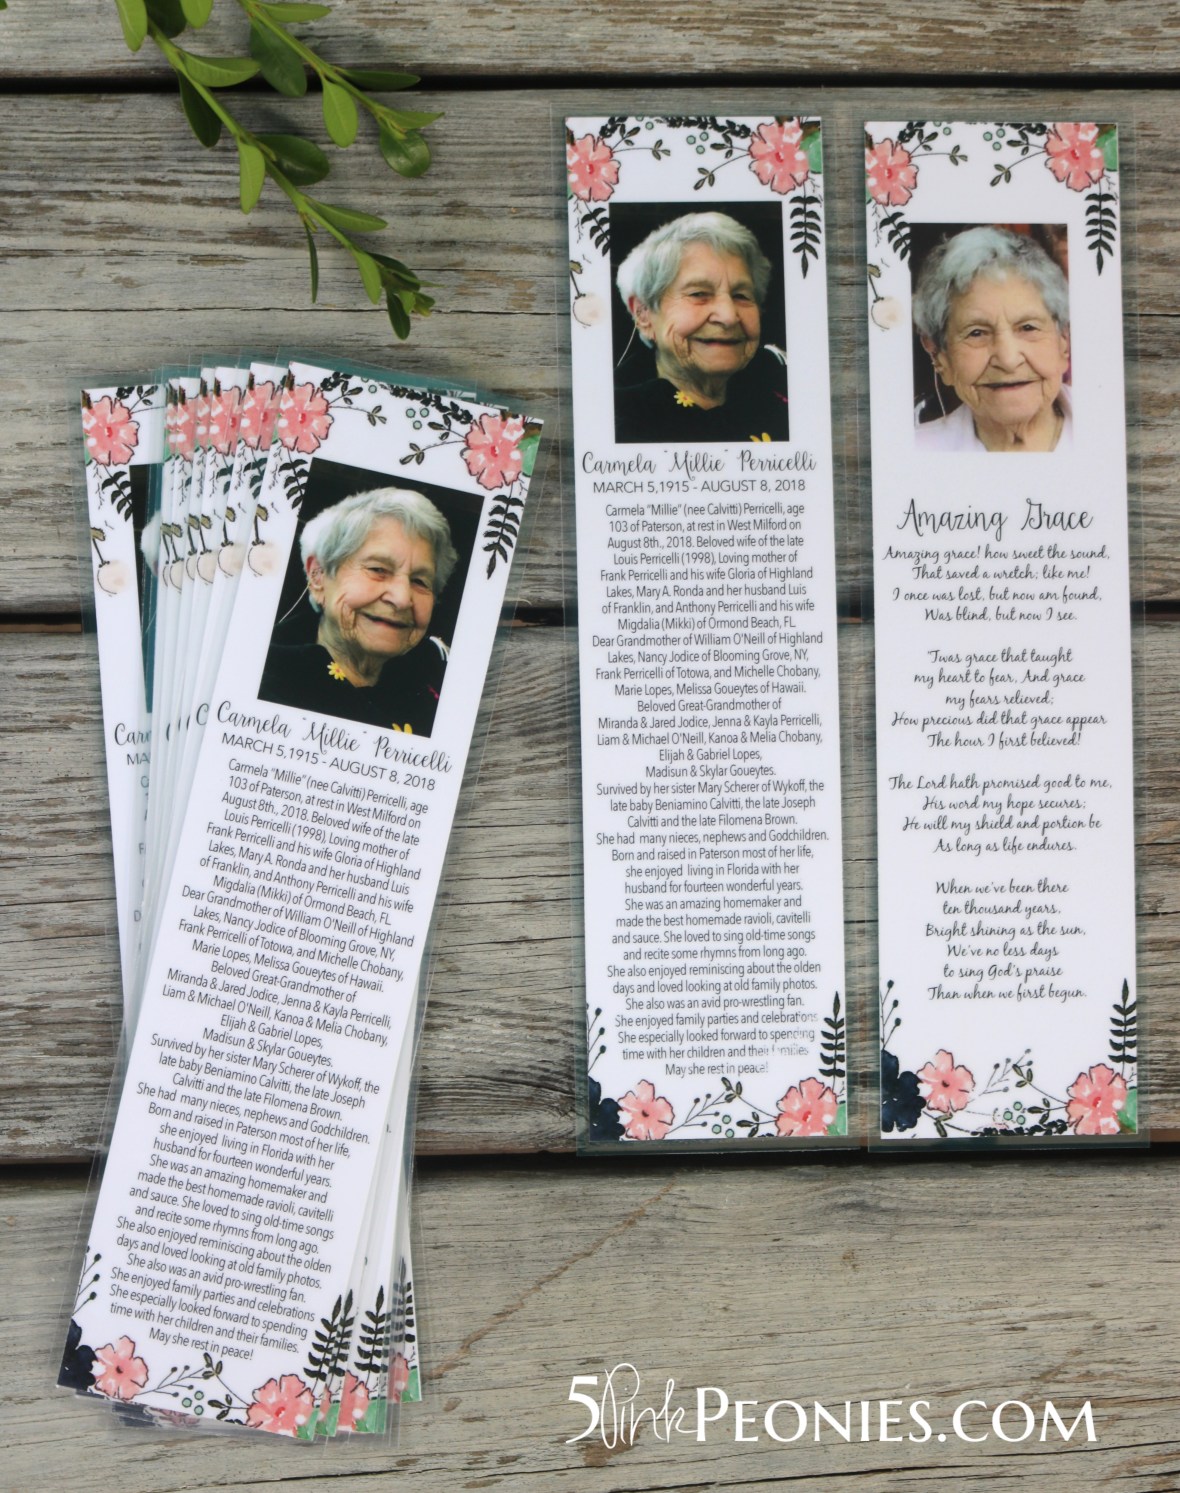 Carmela "Millie" Perricelli
MARCH 5,1915 - AUGUST 8, 2018
Carmela "Millie" (nee Calvitti) Perricelli, age
103 of Paterson, at rest in West Milford on
August 8th., 2018. Beloved wife of the late
Louis Perricelli (1998), Loving mother of
Frank Perricelli and his wife Gloria of Highland
Lakes, Mary A. Ronda and her husband Luis
of Franklin, and Anthony Perricelli and his wife
Migdalia (Mikki) of Ormond Beach, FL.
Dear Grandmother of William O'Neill of Highland
Lakes, Nancy Jodice of Blooming Grove, NY,
Frank Perricelli of Totowa, and Michelle Chobany,
Marie Lopes, Melissa Goueytes of Hawaii.
Beloved Great-Grandmother of
Miranda & Jared Jodice, Jenna & Kayla Perricelli,
Liam & Michael O'Neill, Kanoa & Melia Chobany,
Elijah & Gabriel Lopes,
Madisun & Skylar Goueytes.
Survived by her sister Mary Scherer of Wykoff, the
late baby Beniamino Calvitti, the late Joseph
Calvitti and the late Filomena Brown.
She had many nieces, nephews and Godchildren.
Born and raised in Paterson most of her life,
she enjoyed living in Florida with her
husband for fourteen wonderful years.
She was an amazing homemaker and
made the best homemade ravioli, cavitelli
and sauce. She loved to sing old-time songs
and recite some rhymns from long ago.
She also enjoyed reminiscing about the olden
days and loved looking at old family photos.
She also was an avid pro-wrestling fan.
She enjoyed family parties and celebrations
She especially looked forward to spending
time with her children and their families.
May she rest in peace!
Carmela "Millie" Perricelli
MARCH 5,1915 - AUGUST 8, 2018
Carmela "Millie" (nee Calvitti) Perricelli, age
103 of Paterson, at rest in West Milford on
August 8th., 2018. Beloved wife of the late
Louis Perricelli (1998), Loving mother of
Frank Perricelli and his wife Gloria of Highland
Lakes, Mary A. Ronda and her husband Luis
of Franklin, and Anthony Perricelli and his wife
Migdalia (Mikki) of Ormond Beach, FL.
Dear Grandmother of William O'Neill of Highland
Lakes, Nancy Jodice of Blooming Grove, NY,
Frank Perricelli of Totowa, and Michelle Chobany,
Marie Lopes, Melissa Goueytes of Hawaii.
Beloved Great-Grandmother of
Miranda & Jared Jodice, Jenna & Kayla Perricelli,
Liam & Michael O'Neill, Kanoa & Melia Chobany,
Elijah & Gabriel Lopes,
Madisun & Skylar Goueytes.
Survived by her sister Mary Scherer of Wykoff, the
late baby Beniamino Calvitti, the late Joseph
Calvitti and the late Filomena Brown.
She had many nieces, nephews and Godchildren.
Born and raised in Paterson most of her life,
she enjoyed living in Florida with her
husband for fourteen wonderful years.
She was an amazing homemaker and
made the best homemade ravioli, cavitelli
and sauce. She loved to sing old-time songs
and recite some rhymns from long ago.
She also enjoyed reminiscing about the olden
days and loved looking at old family photos.
She also was an avid pro-wrestling fan.
She enjoyed family parties and celebrations
She especially looked forward to spending
time with her children and their families
May she rest in peace!
Amazing Grace
Amazing grace! how sweet the sound,
That saved a wretch; like me!
I once was lost, but now am found,
Was blind, but now I see.
'Twas grace that taught
my heart to fear, And grace
my fears relieved;
How precious did that grace appear
The hour I first believed!
The Lord hath promised good to me,
His word my hope secures;
He will my shield and portion be
As long as life endures.
When we've been there
ten thousand years,
Bright shining as the sun,
We've no less days
to sing God's praise
Than when we first begun.
5PinkPEONIES.COM